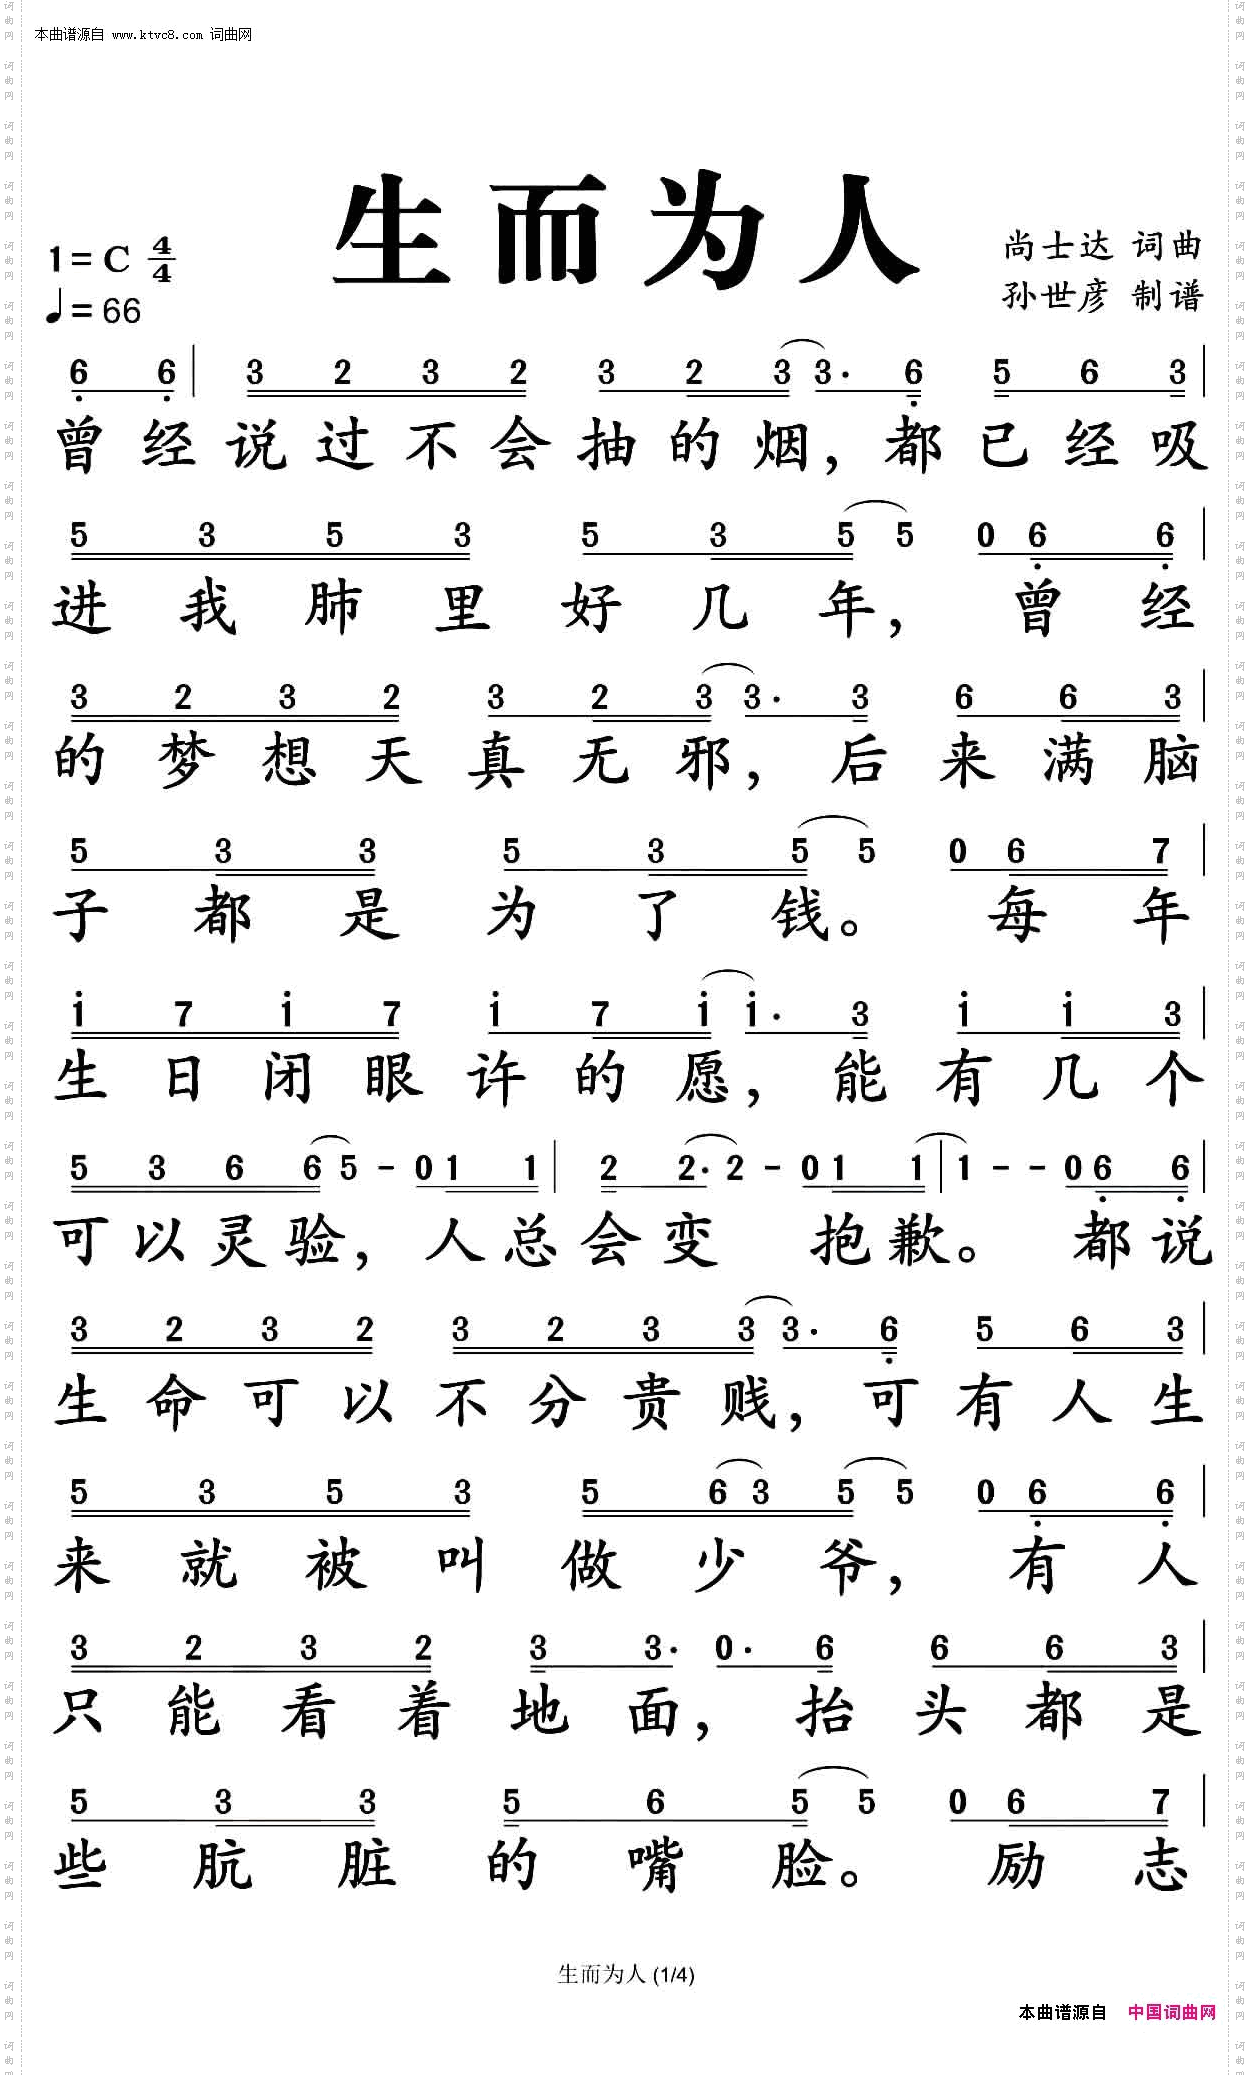 本曲谱源自 www.ktvc8.com 词曲网
生而为人
1=C 4/4
♩=66
尚士达 词曲
孙世彦 制谱
6 6 | 3 2 3 2 3 2 3 3· 6 5 6 3 |
曾经说过不会抽的烟，都已经吸
5 3 5 3 5 3 5 5 0 6 6 |
进我肺里好几年，曾经
3 2 3 2 3 2 3 3· 3 6 6 3 |
的梦想天真无邪，后来满脑
5 3 3 5 3 5 5 0 6 7 |
子都是为了钱。每年
i 7 i 7 i 7 i i· 3 i i 3 |
生日闭眼许的愿，能有几个
5 3 6 6 5 - 0 1 1 | 2 2· 2 - 0 1 1 | 1 - - 0 6 6 |
可以灵验，人总会变 抱歉。都说
3 2 3 2 3 2 3 3 3· 6 5 6 3 |
生命可以不分贵贱，可有人生
5 3 5 3 5 6 3 5 5 0 6 6 |
来就被叫做少爷，有人
3 2 3 2 3 3· 0· 6 6 6 3 |
只能看着地面，抬头都是
5 3 3 5 6 5 5 0 6 7 |
些肮脏的嘴脸。励志
生而为人 (1/4)
本曲谱源自 中国词曲网